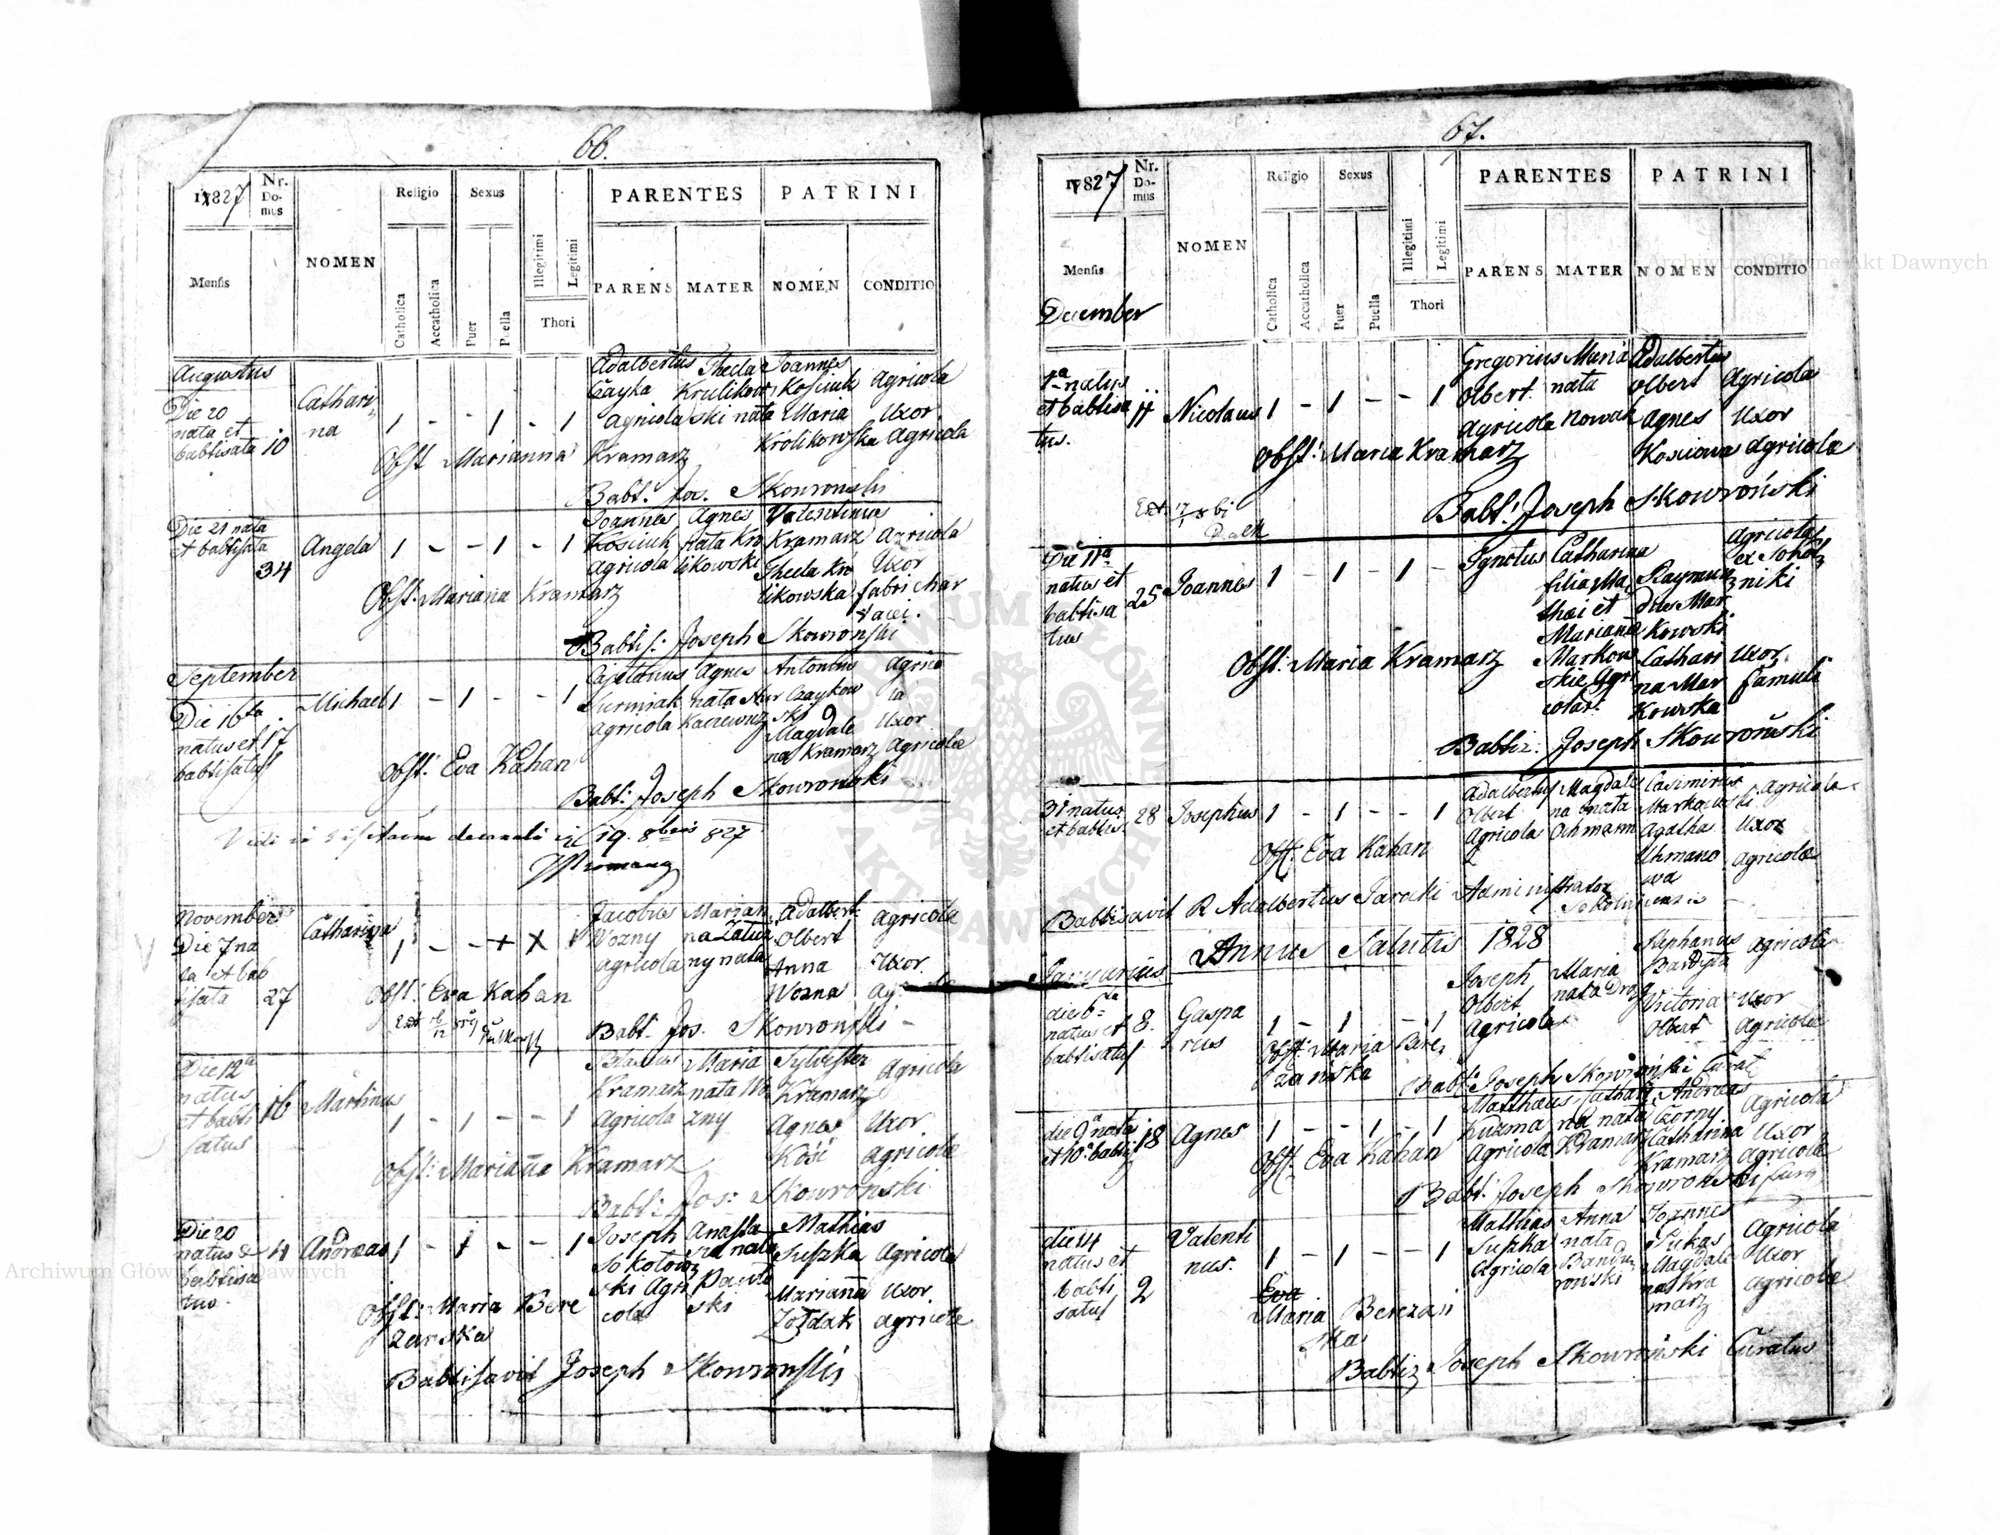 66.
1827
Nr. Do-mus
NOMEN
Religio
Sexus
PARENTES
PATRINI
Mensis
Catholica
Accatholica
Puer
Puella
Illegitimi
Legitimi
Thori
PARENS
MATER
NOMEN
CONDITIO
Augustus
Die 20
nata et
babtisata 10
Cathari
na
1 - - 1 - 1
Adalbertus
Czayka
Agricola
Thecla
Krulikow
ski nata
Kramarz
Joannes
Kosciuk
Maria
Królikowska
Agricola
Uxor
Agricola
Obst. Marianna
Babt. Jos. Skowronski
Die 21 nata
et babtisata
34
Angela
1 - - 1 - 1
Joannes
Kosciuk
Agricola
Agnes
nata Kro
likowski
Valentinus
Kramarz
Thecla Kro
likowska
Agricola
Uxor
fabri
Obst: Mariana Kramarz
Babtis: Joseph Skowronski
September
Die 16ta
natus et 17
babtisatus
Michael
1 - 1 - - 1
Cajetanus
Surmiak
Agricola
Agnes
nata
Antonius
Czaykow
ski
Magdale
na Kramarz
Agrico
la
Uxor
Agricolae
Obst: Eva Kahan
Babt: Joseph Skowronski
19. 8bris 827
November
Die 7 na
ta et bab
tisata 27
Catharina
1 - - + X 1
Jacobus
Wozny
Agricola
Marian
na
ny nata
Adalbert
Olbert
Anna
Wozna
Agricola
Uxor
Obst: Eva Kahan
Babt: Jos. Skowronski
Die 12a
natus
et babti
satus
16
Martinus
1 - 1 - - 1
Blasius
Kramarz
Agricola
Maria
nata Wo
zny
Sylvester
Kramarz
Agnes
Kość
Agricola
Uxor
Agricolae
Obst: Marianna Kramarz
Babt: Jos: Skowronski
Die 20
natus et
babtisa
tus
4
Andreas
1 - 1 - - 1
Joseph
Sokolow
ski Agri
cola
Anasta
zia nata
Pawlo
ski
Mathias
Suszka
Marianna
Zołdak
Agricola
Uxor
agricolae
Obst: Maria Bere
zanska
Babtisavit Joseph Skowronski
67.
1827
Nr. Do-mus
NOMEN
Religio
Sexus
PARENTES
PATRINI
Mensis
Catholica
Accatholica
Puer
Puella
Illegitimi
Legitimi
Thori
PARENS
MATER
NOMEN
CONDITIO
December
1a natus
et babtisa
tus.
11
Nicolaus
1 - 1 - - 1
Gregorius
Olbert
Agricola
Maria
nata
Nowak
Adalbertus
Olbert
Agnes
Kosiowa
Agricola
Uxor
Agricolae
Obst: Maria Kramarz
Babt: Joseph Skowroński
Die 11a
natus et
babtisa
tus
25
Joannes
1 - 1 - 1 -
Ignotus
Catharina
filia Ma
thai et
Marianna
Markow
skie Agri
colar.
Raymun
dus Mar
kowski
Cathari
na Mar
kowska
Agricola
ex Sokol
niki
Uxor
famuli
Obst: Maria Kramarz
Babtiz: Joseph Skowroński
31 natus
et babtis:
28
Josephus
1 - 1 - - 1
Adalbertus
Olbert
Agricola
Magdale
na nata
Ochmann
Casimirus
Markowski
Agatha
Uhmano
wa
Agricola
Uxor
Agricolae
Obst: Eva Kahan
Babtisavit R Adalbertus Jaracki Administrator
Annus Salutis 1828
Januarius
die 6ta
natus et
babtisatus
8.
Gaspa
rus
1 - 1 - - 1
Joseph
Olbert
Agricola
Maria
nata
Stephanus
Victoria
Olbert
Agricola
Uxor
Agricolae
Obst: Maria Bere
zanska
Babt: Joseph Skowroński Curat
die 9 nata
et 10 babtis
18
Agnes
1 - - 1 - 1
Matthaeus
Kuzma
Agricola
Cathari
na nata
Kramarz
Andreas
Gorny
Catharina
Kramarz
Agricola
Uxor
Agricolae
Obst: Eva Kahan
Babt: Joseph Skowronski
die 14
natus et
babti
satus
2
Valenti
nus.
1 - 1 - - 1
Matthias
Suszka
Agricola
Anna
nata
Bandu
rowski
Joannes
Sukas
Magdale
na Kra
marz
Agricola
Uxor
Agricolae
Eva
Maria Berezań
ska
Babtiz Joseph Skowroński Curatus
Archiwum Główne Akt Dawnych
Archiwum Główne Akt Dawnych
ARCHIWUM GŁÓWNE AKT DAWNYCH